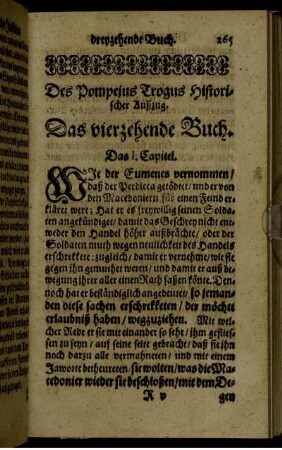 dreyzehende Buch. 265
Des Pompejus Trogus Histori-
scher Außzug.
Das vierzehende Buch.
Das I. Capitel.
WIe der Eumenes vernommen /
daß der Perdicca getödtet / und er von
den Macedoniern für einen Feind er-
kläret were; Hat er es freywillig seinen Solda-
ten angekündiget / damit das Geschrey nicht ent-
weder den Handel höher außbrächte / oder der
Soldaten muth wegen neulichkeit des Handels
erschrekkete: zugleich / damit er vernehme / wie sie
gegen ihn gemuhtet weren / und damit er auß be-
wegung ihrer aller einen Rath faßen könte. Den-
noch hat er beständiglich angedeutet / so jeman-
den diese sachen erschrekketen / der möchte
erlaubniß haben / wegzuziehen. Mit wel-
cher Rede er sie mit einander so sehr / ihm gefließ-
sen zu seyn / auf seine seite gebracht / daß sie ihn
noch darzu alle vermahneten / und mit einem
Jaworte betheureten / sie wolten / was die Ma-
cedonier wieder sie beschloßen / mit dem De-
R v gen